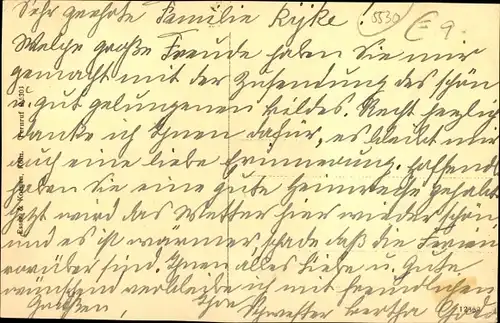 Sehr geehrte Familie Rijke! 5530 E 9.
Welche große Freude haben Sie mir
gemacht mit der Zusendung des schön
u. gut gelungenen Bildes. Recht herzlich
danke ich Ihnen dafür, es bleibt mir
auch eine liebe Erinnerung. Hoffendl.
haben Sie eine gute Heimreise gehabt.
Jetzt wird das Wetter hier wieder schön
und es ist wärmer, schade daß die Ferien
vorüber sind. Ihnen alles Liebe u. Gute
wünschend verbleibe ich mit freundlichen
Grüßen, Ihre
Schwester Bertha